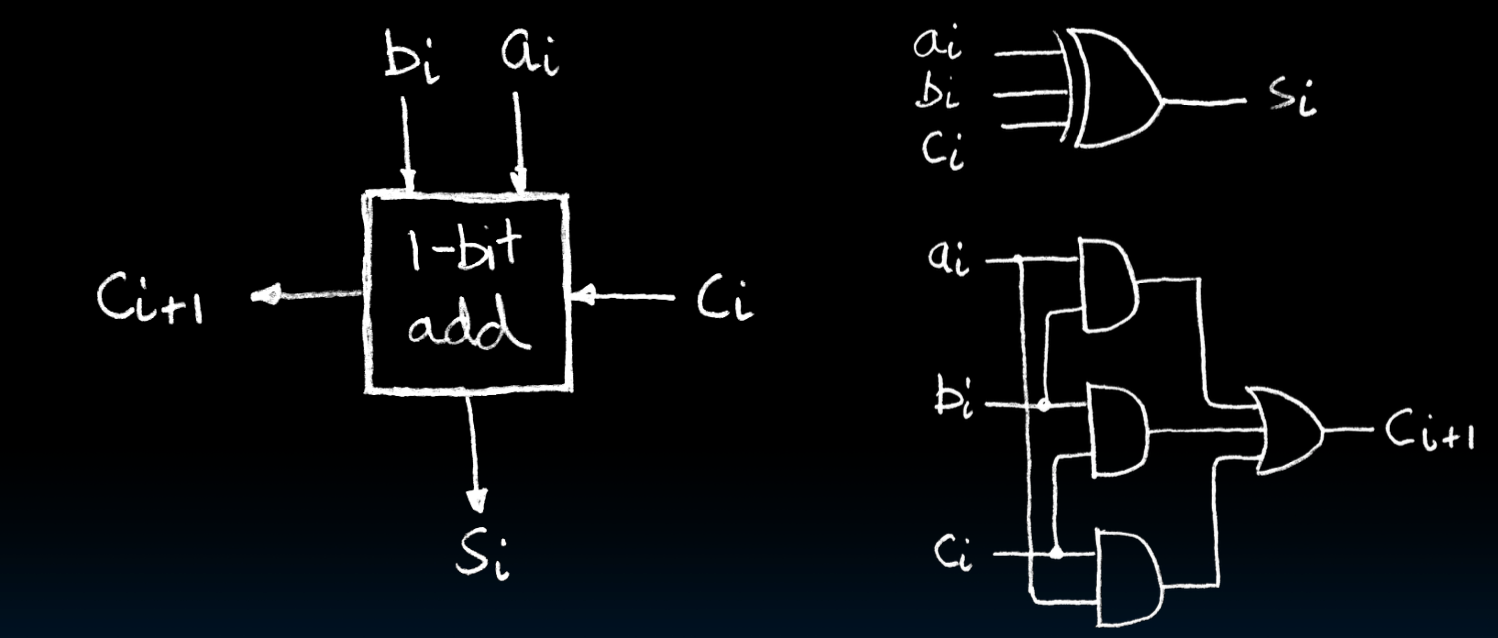 bi ai
1-bit
add
Ci+1
Ci
Si
ai
bi
Ci
Si
ai
bi
Ci
Ci+1